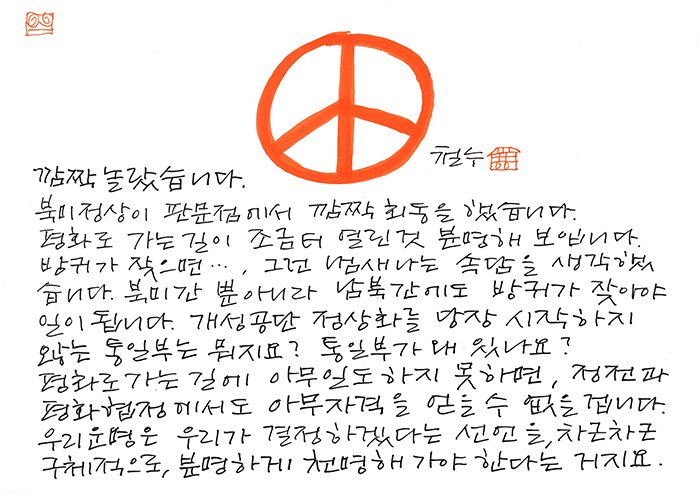 철수
깜짝 놀랐습니다.
북미정상이 판문점에서 깜짝 회동을 했습니다.
평화로 가는길이 조금터 열린것 분명해 보입니다.
방귀가 잦으면…, 그런 냄새나는 속담을 생각했
습니다. 북미간 뿐아니라 남북간에도 방귀가 잦아야
일이 됩니다. 개성공단 정상화를 당장 시작하지
않는 통일부는 뭐지요? 통일부가 왜 있나요?
평화로가는 길에 아무일도 하지 못하면, 정전과
평화협정에서도 아무자격을 얻을 수 없을 겁니다.
우리운명은 우리가 결정하겠다는 선언을, 차근차근
구체적으로, 분명하게 천명해 가야 한다는 거지요.